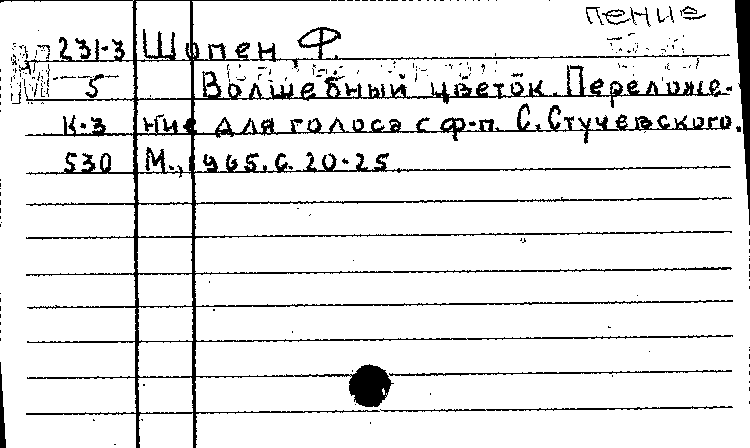 пение
М 231-3 Шопен, Ф.
5 Волшебный цветок. Переложе-
К-3 ние для голоса с ф-п. С. Стучевского.
530 М., 1965. С. 20-25.